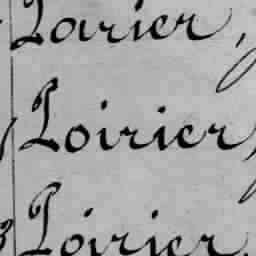 Poirier,
Poirier,
Poirier,